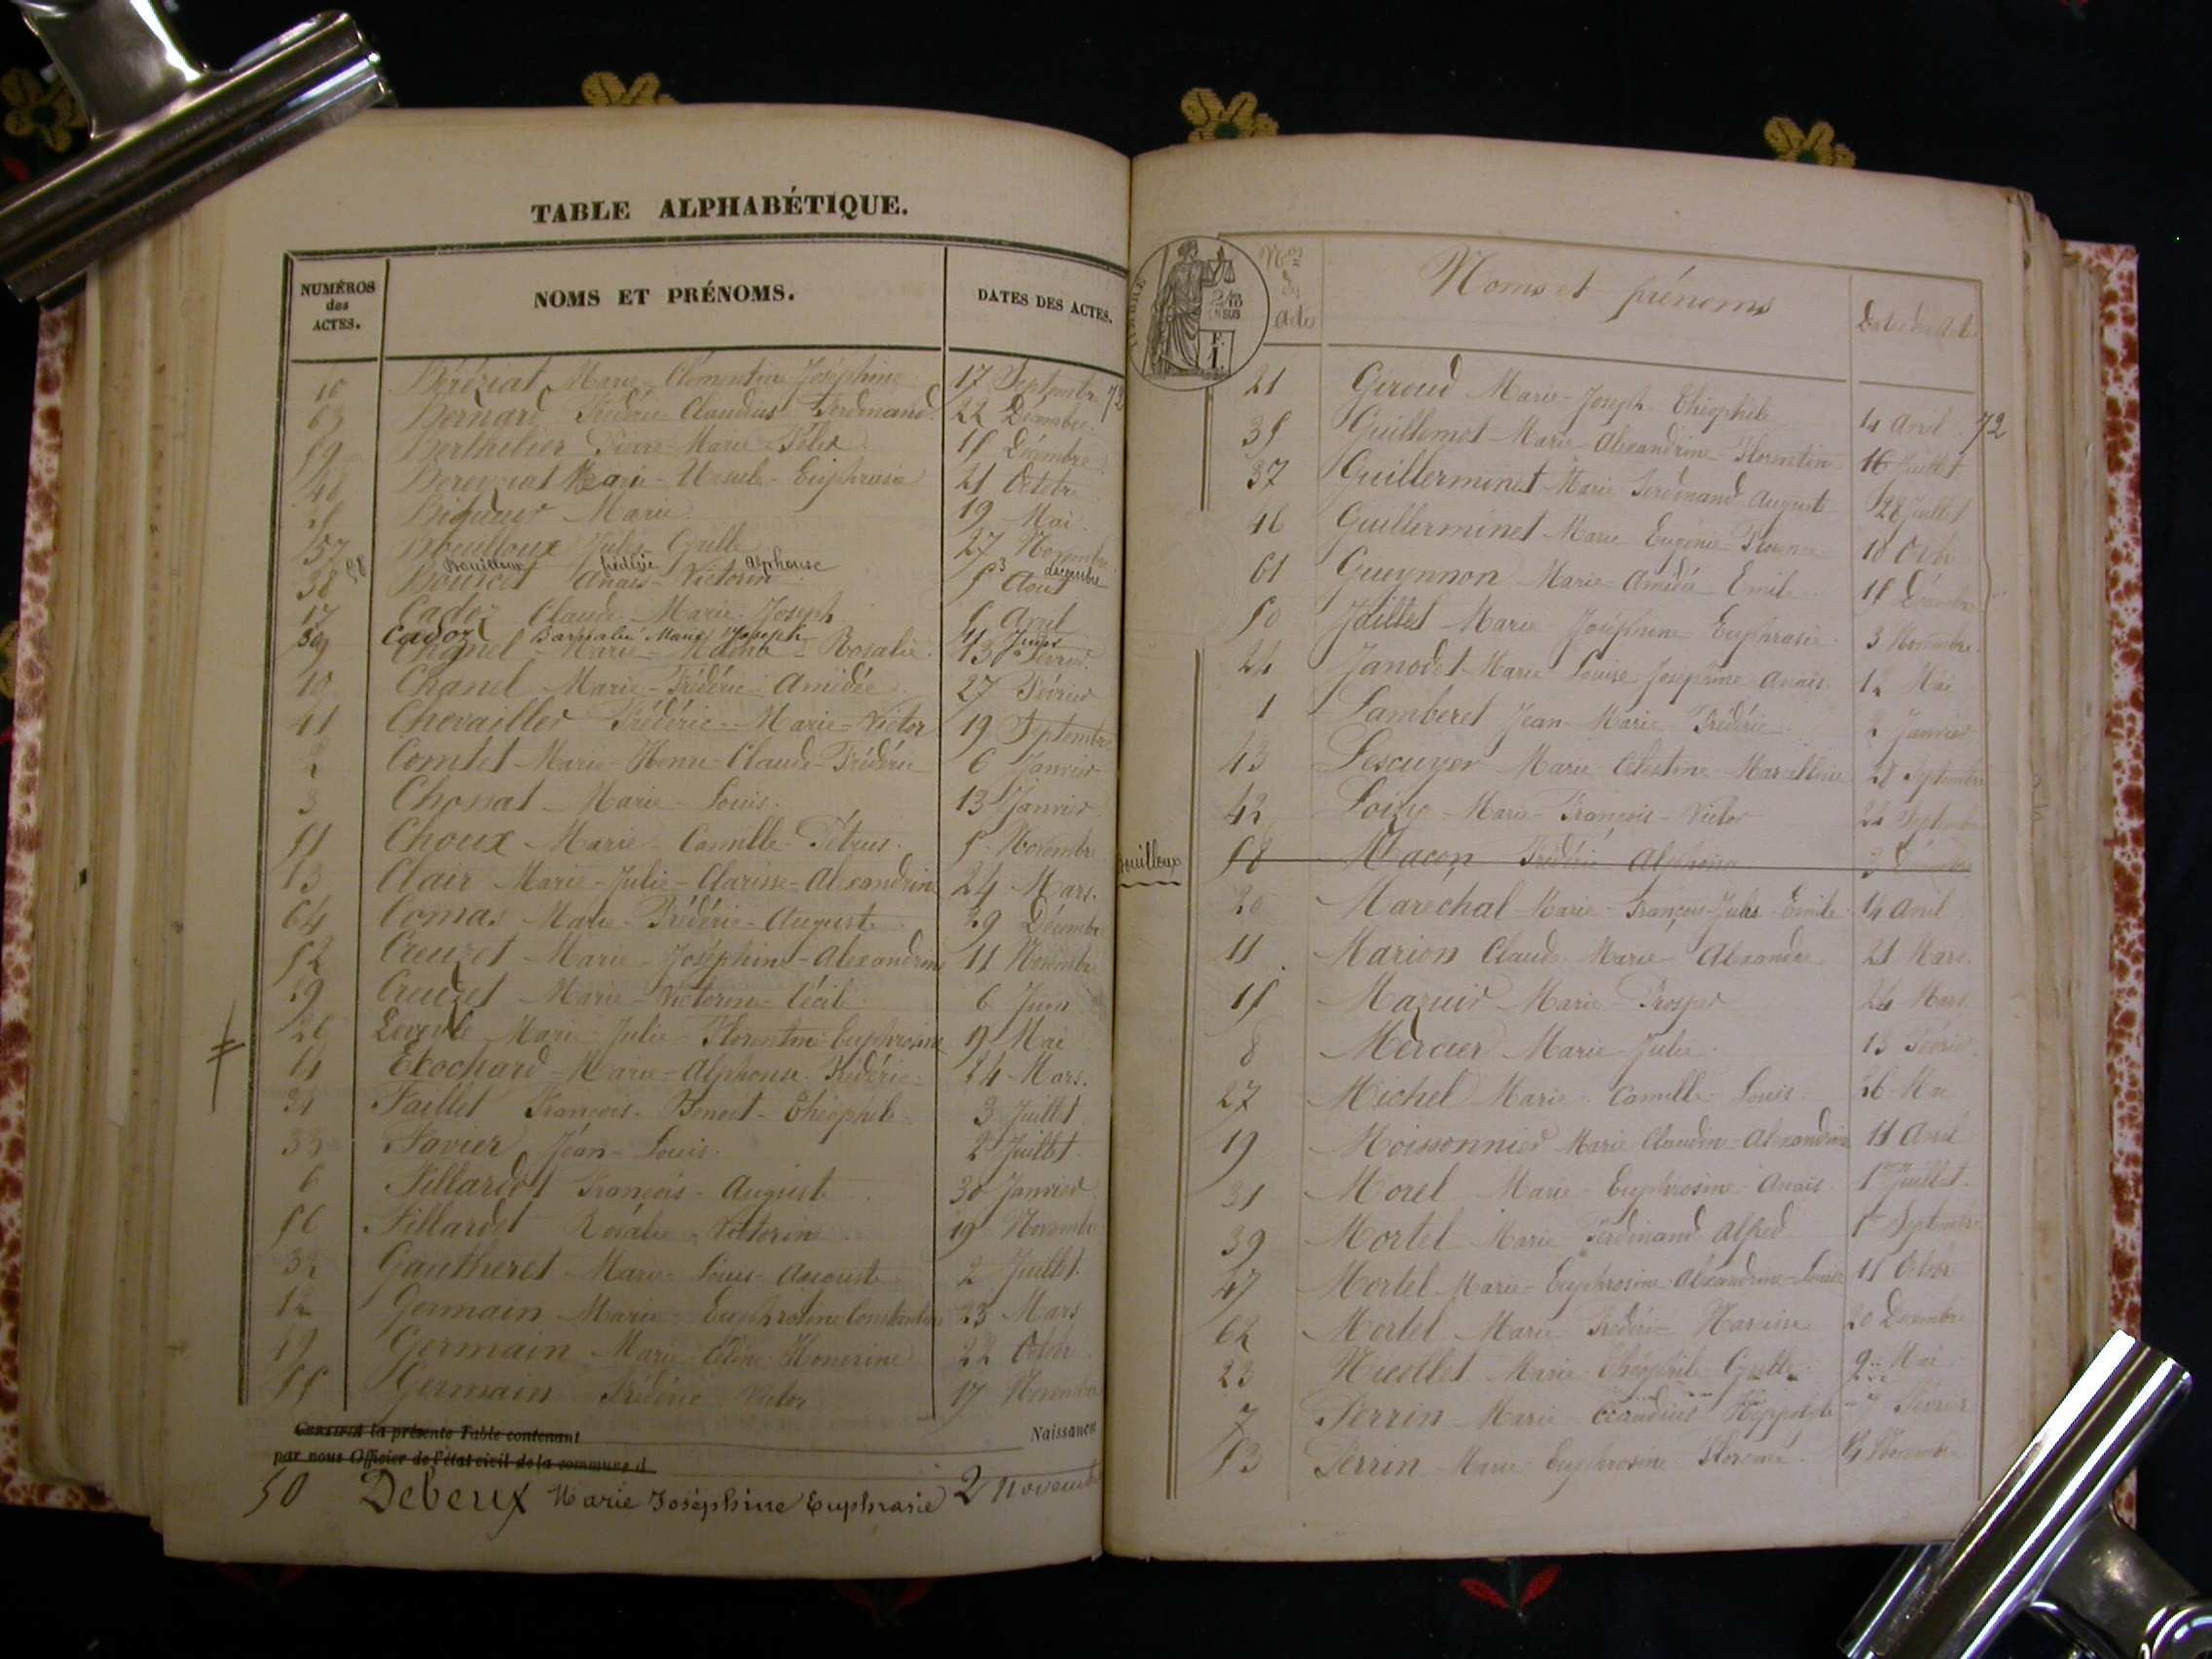 TABLE ALPHABÉTIQUE.
NUMÉROS des ACTES. NOMS ET PRÉNOMS. DATES DES ACTES.
Béréziat Marie Clémentine Joséphine 17 Septembre 72
63 Bernard Frédéric Claudius Ferdinand 22 Décembre
59 Berthelier Pierre-Marie-Félix 15 Décembre
48 Marie-Ursule-Euphrasie 21 Octobre
Marie 19 Mai
57 Bouilloux Jules Cyrille 27 Novembre
58 Bouilloux frédéric Alphonse 3 décembre
38 Anaïs-Victorin 5 Août
17 Cadoz Claude-Marie-Joseph 6 Avril
30 Cadoz Barnabé Marie Joseph 11 Juin
9 Chanel-Marie-Rosalie 13 Février
10 Chanel Marie-Frédéric Amédée 27 Février
41 Chevailler Frédéric-Marie-Victor 19 Septembre
2 Comtet-Marie-Henri-Claude-Frédéric 6 Janvier
3 Chossat-Marie-Louis 13 Janvier
51 Choux-Marie-Camille-Pétrus 5 Novembre
13 Clair Marie-Julie-Clarisse-Alexandrine 24 Mars.
64 Comas Marie-Frédéric-Auguste 29 Décembre
52 Creuzet Marie-Joséphine-Alexandrine 11 Novembre
29 Creuzet Marie-Victorine-Cécile 6 Juin
Marie-Julie-Florentine-Euphrosine 19 Mai
14 Etochard-Marie-Alphonse Frédéric 24 Mars.
34 Faillet François-Benoit-Théophile 3 Juillet
33 Favier Jean-Louis 2 Juillet
6 Fillardet François-Auguste 30 Janvier
56 Fillardet Rosalie Victorine 19 Novembre
32 Gautheret-Marie-Louis-Auguste 2 Juillet
12 Germain Marie-Euphrosine 23 Mars
49 Germain Marie Honorine 22 Octobre
55 Germain Frédéric Victor 17 Novembre
Certifié la présente Table contenant Naissances
par nous Officier de l'état civil de la commune d
50 Debeux Marie Joséphine Euphrasie 2 novembre
TIMBRE
Nos des actes Noms et prénoms Dates des Actes
21 Giroud Marie-Joseph-Théophile 14 Avril 72
35 Guillemot-Marie-Alexandrine-Florentine 16 Juillet
37 Guillerminet-Marie Ferdinand Auguste 28 Juillet
46 Guillerminet-Marie Eugénie 10 Octobre
61 Gueynnon Marie-Amédée Emile 15 Décembre
50 Jaillet-Marie Joséphine Euphrasie 3 Novembre
24 Janodet-Marie Louise Joséphine Anaïs 12 Mai
1 Lamberet Jean-Marie Frédéric 2 Janvier
43 Lescuyer Marie Célestine Marcelline 28 Septembre
42 Loisy-Marie-François-Victor 22 Septembre
bouilloux 58 Macon Frédéric Alphonse 3 Décembre
20 Marechal-Marie-François-Jules-Emile 14 Avril
11 Marion Claude-Marie-Alexandre 21 Mars.
15 Mazuir Marie-Prosper 24 Mars
8 Mercier Marie-Jules 13 Février
27 Michel Marie-Camille-Louis 26 Mai
19 Moissonnier Marie Claudine-Alexandrine 11 Avril
31 Morel Marie-Euphrosine-Anaïs 1er Juillet
39 Mortel Marie Ferdinand Alfred 1er Septembre
47 Mortel-Marie-Euphrosine-Alexandrine-Louise 15 Octobre
62 Mortel Marie Frédéric 20 Décembre
23 Nicollet Marie-Théophile-Cyrille 9 Mai
7 Perrin Marie Claudius Hippolyte 7 Février
53 Perrin Marie Euphrosine 14 Novembre